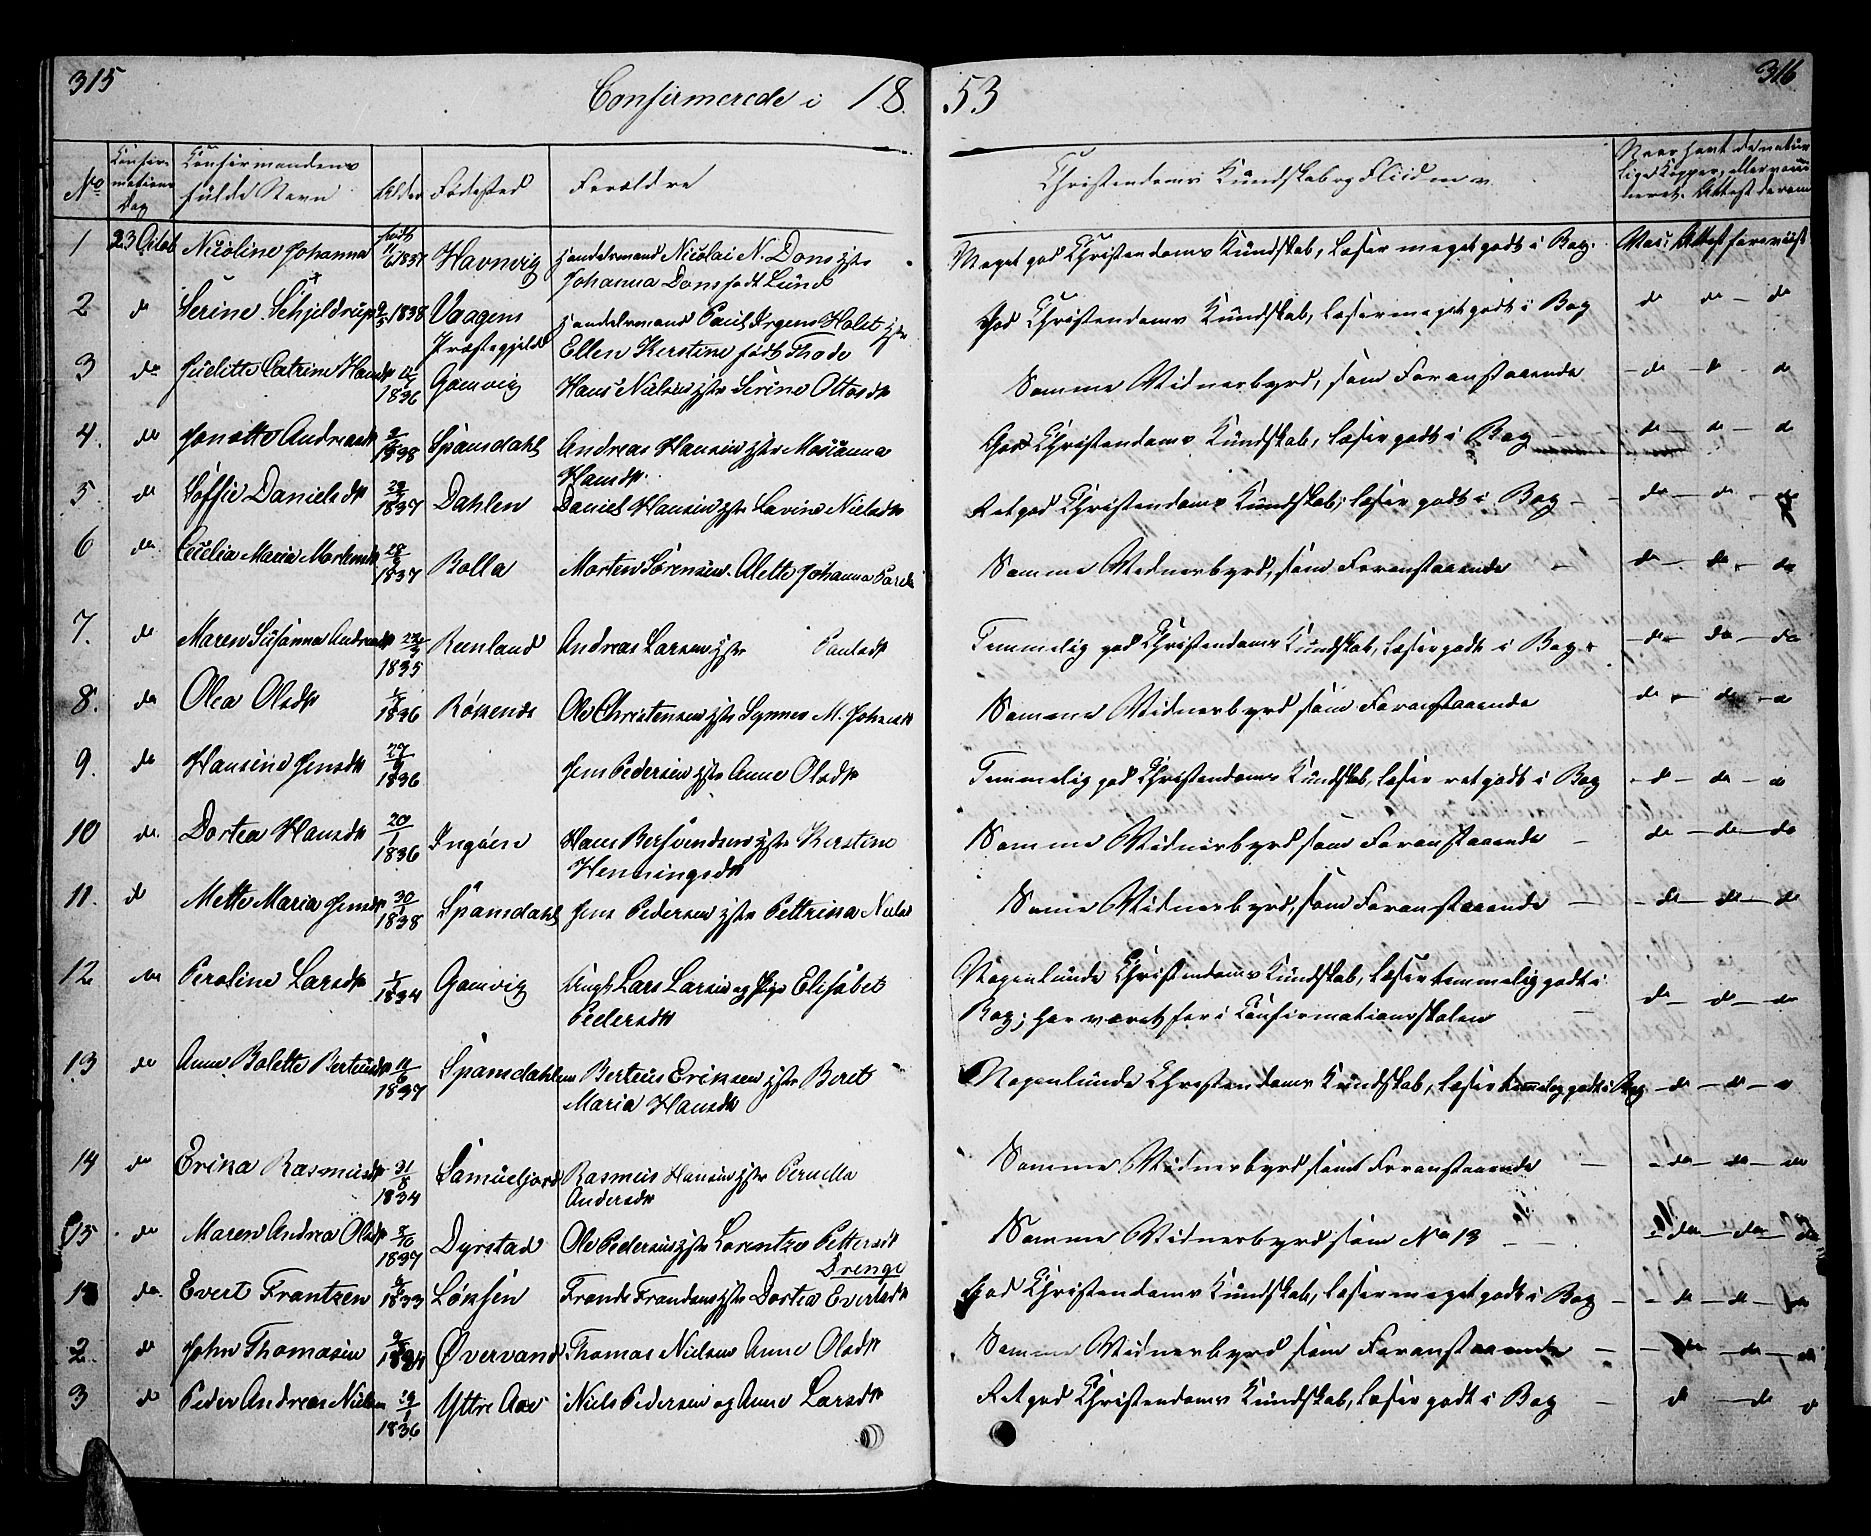 315
Confirmerede i 18
53
316
No
Confirmations Dag
Confirmandens fulde Navn
Alder
Fødested
Forældre
Christendoms Kundskab og Fliid m. v.
Naar havt de naturlige Kopper, eller vaccineret. Attest derom
1 23 Octob Nicoline Johanna født 1837 Havnvig Handelsmand Nicolai N. Dons Hstr Johanna Dons født Lund Meget god Christendoms Kundskab, læser meget godt i Bog. Vac: Attest foreviist
2 do Serine Schjeldrup 1838 Vaagens Præstegjeld Handelsmand Paul Irgens Holst Hstr Ellen Kerstine født Thode God Christendoms Kundskab, læser meget godt i Bog do — do — do
3 do Julitte Catrine Hansdtr 1836 Gamvig Hans Nielsen Hstr Serine Ottosdtr Samme Vidnesbyrd, som Foranstaaende do — do — do
4. do Jonette Andreasdtr 1838 Spansdahl Andreas Hansen Hstr Marianna Hansdtr God Christendoms Kundskab, læser godt i Bog do — do — do
5. do Soffie Danielsdtr 1837 Dahlen Daniel Hansen Hstr Lavine Nielsdtr Ret god Christendoms Kundskab, læser godt i Bog — do — do — do
6 do Cecelia Maria Mortensdtr 1837 Rolla Morten Sørensen Alette Johanna Samme Vidnesbyrd, som Foranstaaende — do — do — do
7. do Maren Susanna Andreasdtr 1835 Reenland Andreas Larsen Hstr Paulsdtr Temmelig god Christendoms Kundskab, læser godt i Bog do — do — do
8. do Olea Olsdtr 1836 Røkenes Ole Christensen Hstr Synnes M. Johnsdtr Samme Vidnesbyrd som Foranstaaende do — do — do
9. do Hansine Jensdtr 1836 Jens Pedersen Hstr Anne Olsdtr Temmelig god Christendoms Kundskab, læser ret godt i Bog do — do — do
10 do Dortea Hansdtr 20/1 1836 Ingøen Hans Bersvendsen Hstr Kerstine Henningsdtr Samme Vidnesbyrd som Foranstaaende — do — do — do
11. do Mette Maria Jensdtr 30/1 1838 Spansdahl Jens Pedersen Hstr Pettrina Niels Samme Vidnesbyrd, som Foranstaaende — do — do — do
12 do Peroline Larsdtr 1834 Gamvig Ungk Lars Larsen og Pige Elisabet Pedersdtr Nogenlunde Christendoms Kundskab, læser temmelig godt i Bog; har været før i Confirmationsskolen do — do — do
13 do Anne Bolette Berteusdtr 1837 Spansdahlen Berteus Eriksen Hstr Beret Maria Hansdtr Nogenlunde Christendoms Kundskab, læser temmelig godt i Bog do — do — do
14 do Erika Rasmusdtr 31/8 1834 Samuelfjord Rasmus Hansen Hstr Pernella Andersdtr Samme Vidnesbyrd som Foranstaaende — do — do — do
15 do Maren Andrea Olsdtr 1837 Dyrstad Ole Pedersen Hstr Lorentze Pettersdtr Samme Vidnesbyrd som No 13 — do — do — do
Drenge
1 do Evert Frantzen 1833 Løksen Frands Frandsens Hstr Dortea Evertsdtr God Christendoms Kundskab, læser meget godt i Bog — do — do — do
2. do John Thomasen Øvervand Thomas Nielsen Anne Olsdtr Samme Vidnesbyrd som Foranstaaende — do — do — do
3 do Peder Andreas Nielsen 1836 Yttre Aae Niels Pedersen og Anne Larsdtr Ret god Christendoms Kundskab, læser godt i Bog — do — do do